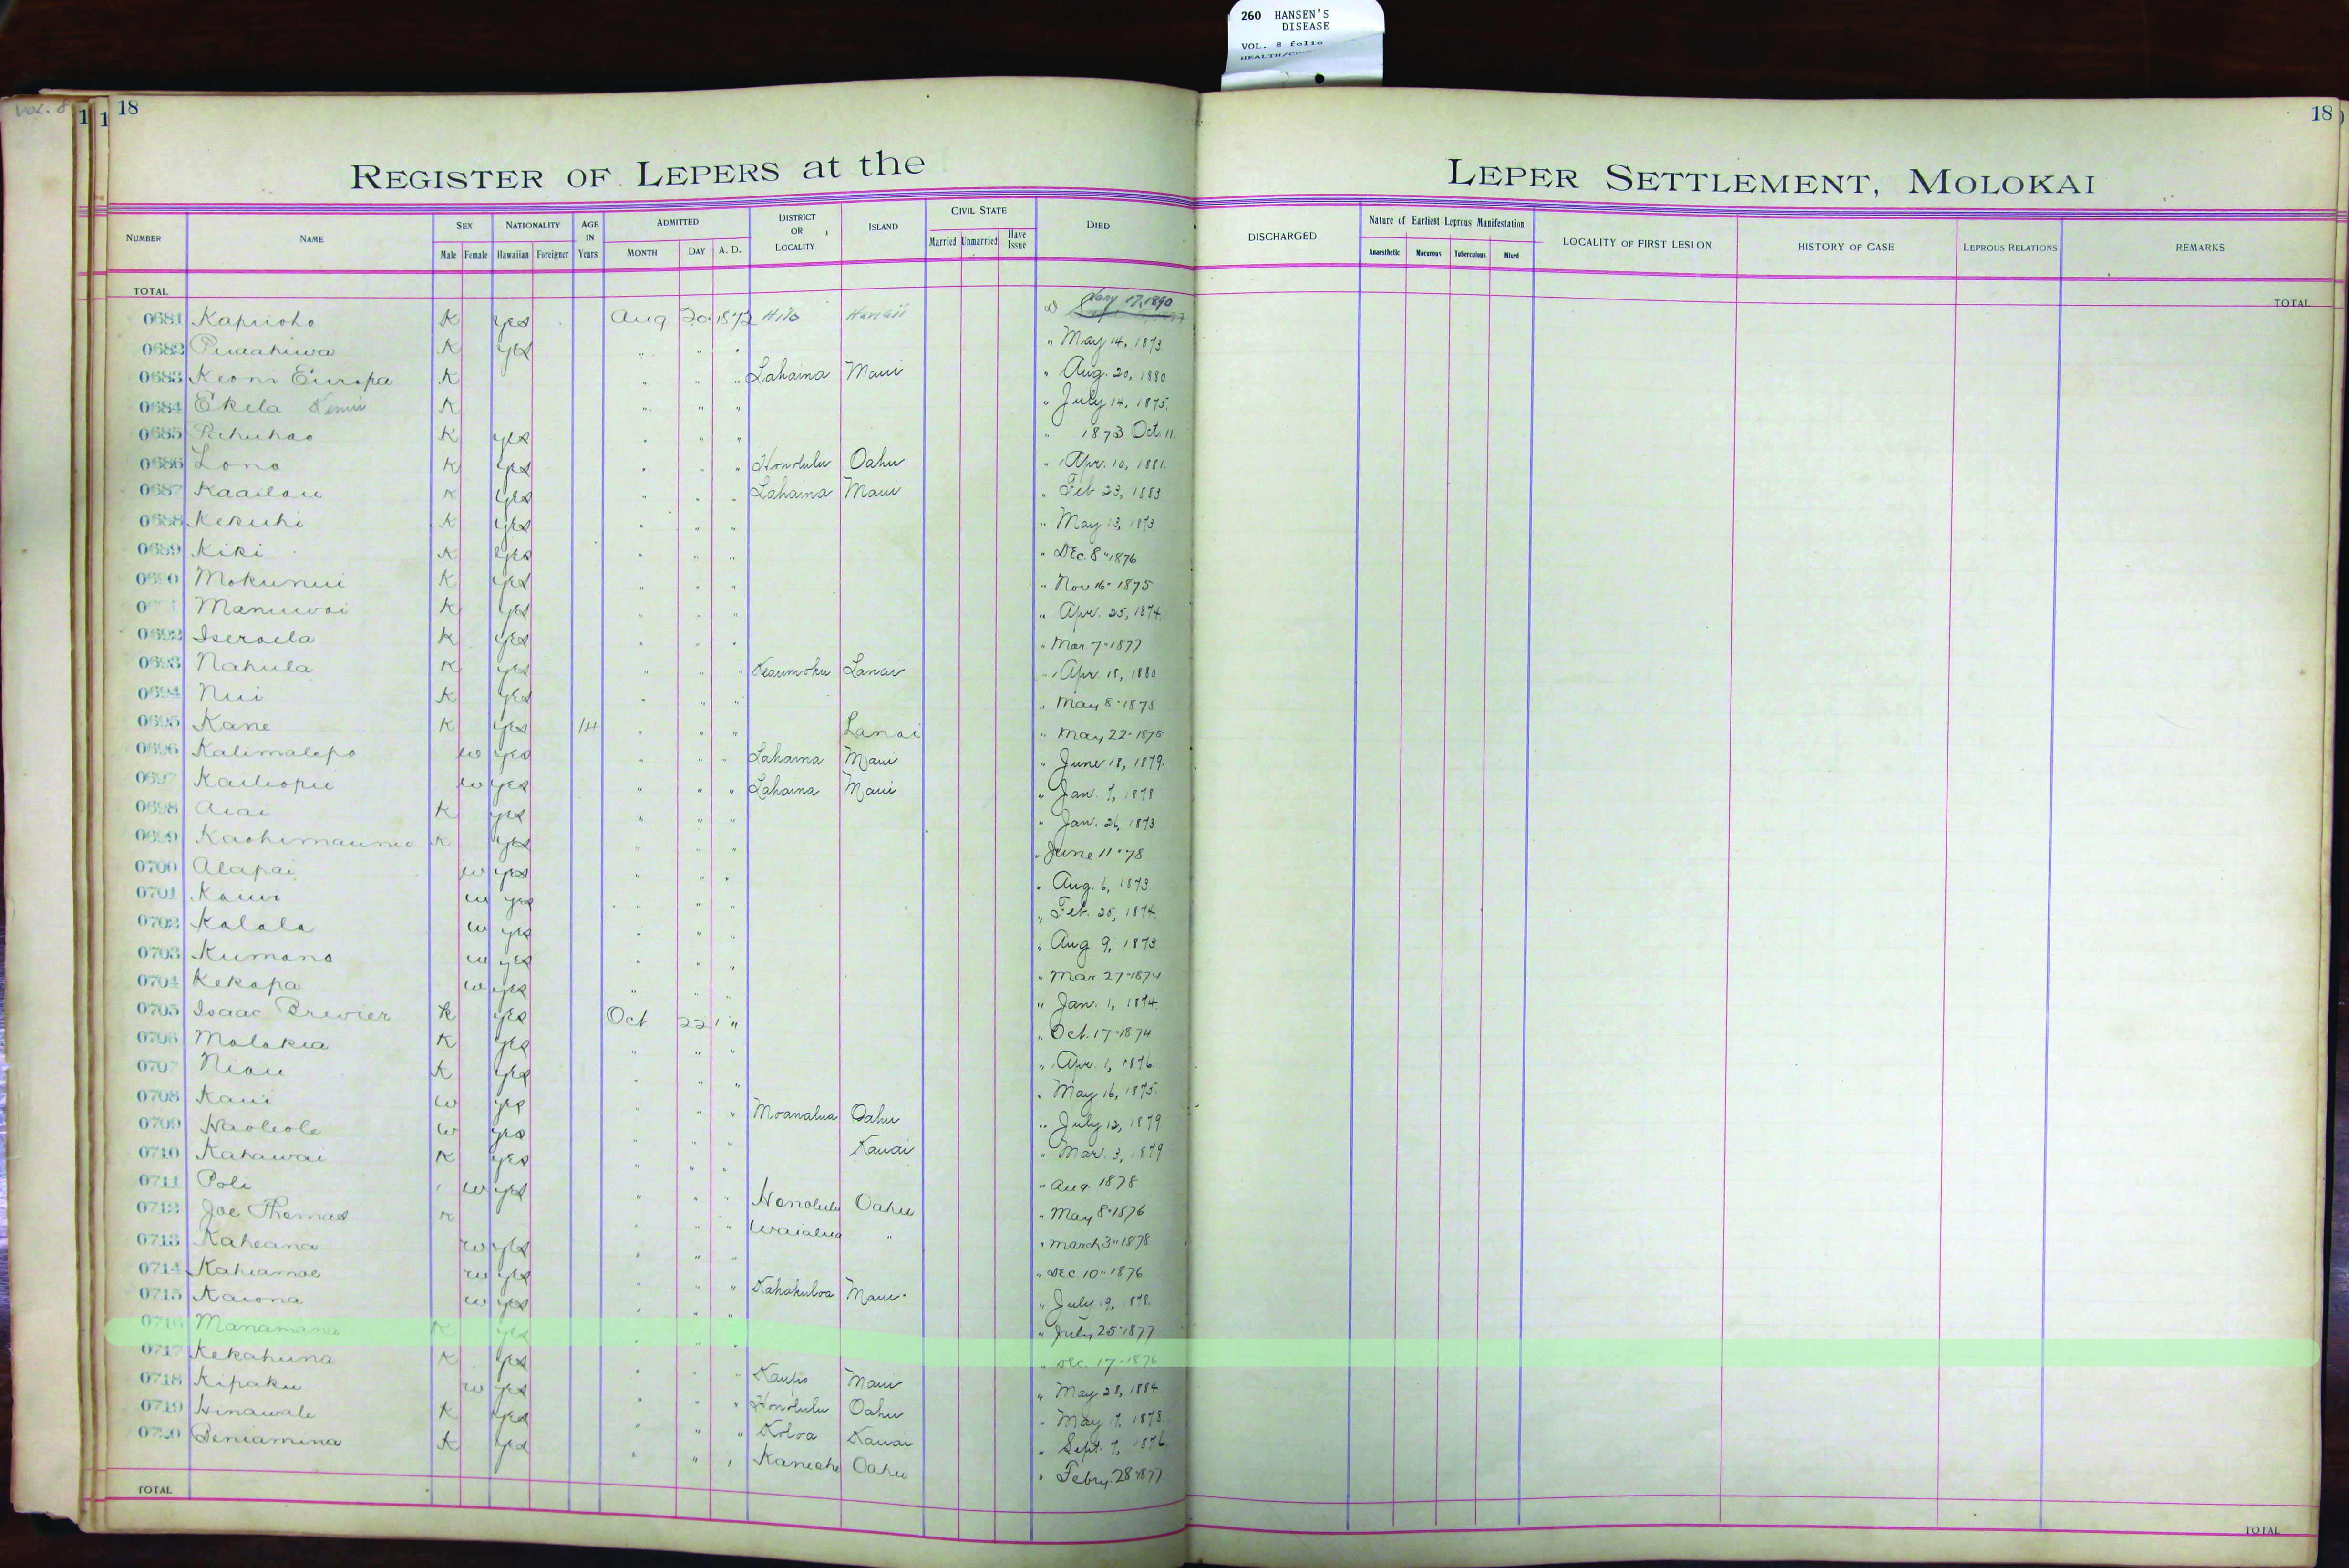 260 HANSEN'S
DISEASE
VOL. 8 folio
Vol. 8
18
18
REGISTER OF LEPERS at the LEPER SETTLEMENT, MOLOKAI
NUMBER NAME SEX Male Female NATIONALITY Hawaiian Foreigner AGE IN Years ADMITTED MONTH DAY A. D. DISTRICT OR LOCALITY ISLAND CIVIL STATE Married Unmarried Have Issue DIED DISCHARGED Nature of Earliest Leprous Manifestation Anaesthetic Macurous Tuberculous Mixed LOCALITY OF FIRST LESION HISTORY OF CASE LEPROUS RELATIONS REMARKS
TOTAL TOTAL
0681 Kapiioho K yes Aug 20 1872 Hilo Hawaii Jany 17, 1890
0682 Puaahiwa K yes " " " " May 14, 1873
0683 Keoni Europa K " " " Lahaina Maui " Aug. 20, 1880
0684 Ekela K " " " " July 14, 1875
0685 Pahuhao K yes " " " " 1873 Oct. 11
0686 Lono K yes " " " Honolulu Oahu " Apr. 10, 1881
0687 Kaailau K yes " " " Lahaina Maui " Feb 23, 1883
0688 Kekuhi K yes " " " " May 13, 1873
0689 Kiki K yes " " " " Dec. 8" 1876
0690 Mokunui K yes " " " " Nov 16" 1875
Manuwai K yes " " " " Apr. 25, 1874
0692 Iseraela K yes " " " " Mar 7" 1877
0693 Nahula K yes " " " Keaumoku Lanai " Apr. 18, 1880
0694 Nui K yes " " " " May 8" 1875
0695 Kane K yes 14 " " " Lanai " May 22" 1875
0696 Kalimalepo w yes " " " Lahaina Maui " June 18, 1879
0697 Kailiopu w yes " " " Lahaina Maui " Jan. 7, 1878
0698 Aiai K yes " " " " Jan. 26, 1873
0699 K yes " " " " June 11" 78
0700 Alapai w yes " " " " Aug. 6, 1873
0701 Kauwi w yes " " " " Feb. 25, 1874
0702 Kalala w yes " " " " Aug 9, 1873
0703 Kumano w yes " " " " Mar 27" 1874
0704 Kekapa w yes " " " " Jan. 1, 1874
0705 Isaac Brewer K yes Oct 22 " " Oct. 17" 1874
0706 Molokia K yes " " " " Apr. 1, 1876
0707 Niau K yes " " " " May 16, 1875
0708 Kaui w yes " " " Moanalua Oahu " July 12, 1879
0709 Haoleole w yes " " " Kauai " Mar. 3, 1879
0710 Kahawai K yes " " " " Aug 1878
0711 Poli w yes " " " Honolulu Oahu " May 8" 1876
0712 Joe Thomas K " " " Waialua " " March 3" 1878
0713 Kaheana w yes " " " " Dec 10" 1876
0714 Kahiamoe w yes " " " Kahakuloa Maui " July 19, 1878
0715 Kaiona w yes " " " " July 25" 1877
0716 Manamana K yes " " " " Dec. 17" 1876
0717 Kekahuna K yes " " " Kaupo Maui " May 28, 1884
0718 Kipaku w yes " " " Honolulu Oahu " May 17, 1878
0719 Hinawale K yes " " " Koloa Kauai " Sept. 7, 1876
0720 Beniamina K yes " " " Kaneohe Oahu " Febry. 28" 1877
TOTAL TOTAL